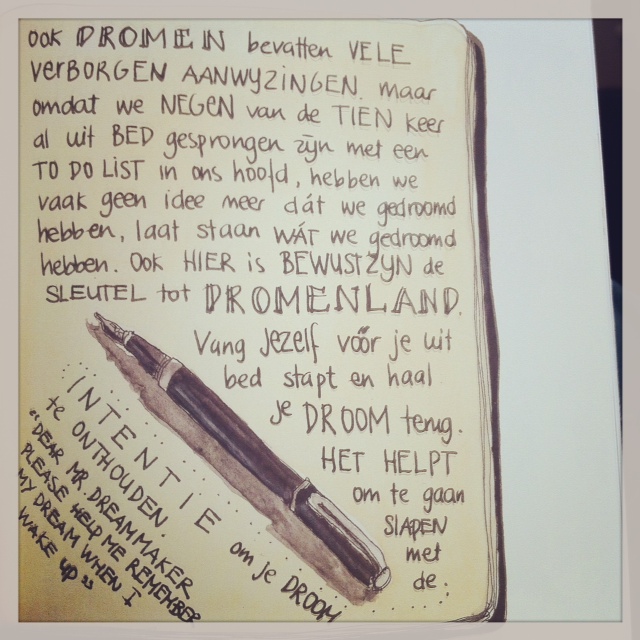 ook DROMEN bevatten VELE
VERBORGEN AANWYZINGEN. maar
omdat we NEGEN van de TIEN keer
al uit BED gesprongen zijn met een
TO DO LIST in ons hoofd, hebben we
vaak geen idee meer dát we gedroomd
hebben, laat staan WÁT we gedroomd
hebben. Ook HIER is BEWUSTZYN de
SLEUTEL tot DROMENLAND.
Vang JEZELF vóór je uit
bed stapt en haal
je DROOM terug.
HET HELPT
om te gaan
SLAPEN
met
de:
INTENTIE om je DROOM
te ONTHOUDEN.
"DEAR MR. DREAMMAKER
PLEASE HELP ME REMEMBER
MY DREAM WHEN I
WAKE UP"